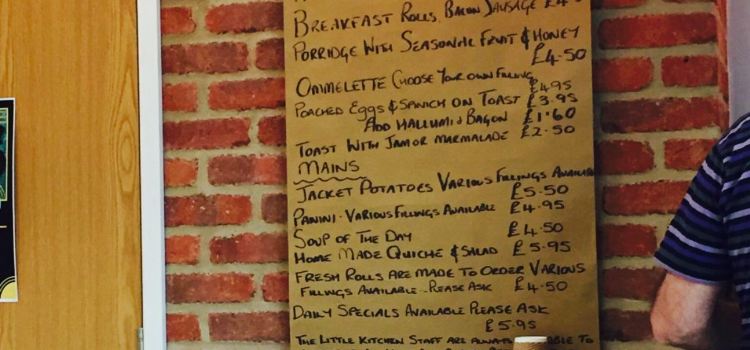 BREAKFAST ROLLS, BACON SAUSAGE £4
PORRIDGE WITH SEASONAL FRUIT & HONEY
£4.50
OMMELETTE CHOOSE YOUR OWN FILLING
£4.95
POACHED EGGS & SPANICH ON TOAST £3.95
ADD HALLUMI & BACON £1.60
TOAST WITH JAM OR MARMALADE £2.50
MAINS
JACKET POTATOES VARIOUS FILLINGS AVAILABLE
£5.50
PANINI - VARIOUS FILLINGS AVAILABLE £4.95
SOUP OF THE DAY £4.50
HOME MADE QUICHE & SALAD £5.95
FRESH ROLLS ARE MADE TO ORDER VARIOUS
FILLINGS AVAILABLE - PLEASE ASK £4.50
DAILY SPECIALS AVAILABLE PLEASE ASK
£5.95
THE LITTLE KITCHEN STAFF ARE ALWAYS TO